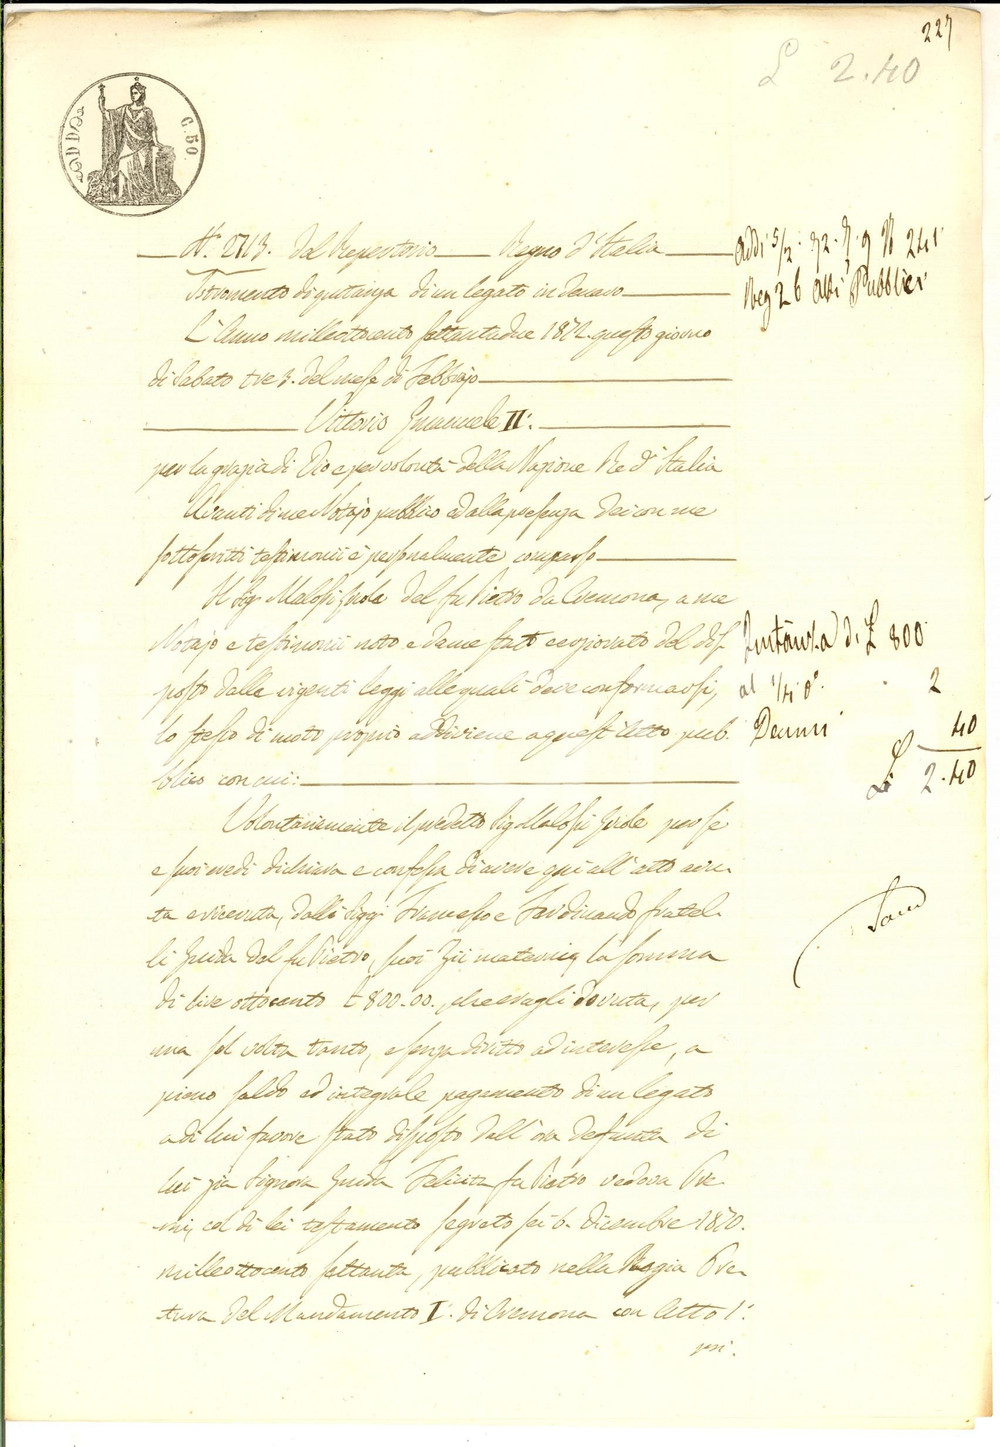 227
£ 2.40
C. 50
N.° 2713. del Repertorio Regno d'Italia
Istromento di quitanza di un legato in denaro
L'Anno milleottocento settantadue 1872. questo giorno
di Sabato tre 3. del mese di Febbrajo
Vittorio Emanuele II.
per la grazia di Dio e per volontà della Nazione Re d'Italia
Avanti di me Notajo pubblico ed alla presenza dei con me
sottoscritti testimonii è personalmente comparso
Il Sig. Malossi del fu Pietro da Cremona, a me
Notajo e testimonii noto e da me stato cerziorato del dis-
posto dalle vigenti leggi alle quali deve conformarsi,
lo stesso di moto proprio addiviene a quest'Atto pub-
blico con cui:
Volontariamente il predetto Sig. Malossi per sè
e suoi eredi dichiara e confessa di avere qui all'atto avu-
ta e ricevuta, dalli Siggi Francesco e Ferdinando fratel-
li Guida del fu Pietro, suoi Zii materni, la somma
di lire ottocento £ 800.00., che essagli dovuta, per
una sol volta tanto, e senza diritto ad interesse, a
pieno saldo ed integrale pagamento di un legato
a di lui favore stato disposto dall'ora defunta di
lui zia Signora Guida Felicita fu Pietro vedova Pre-
mi, col di lei testamento segreto sei 6. Dicembre 1870.
milleottocento settanta, pubblicato nella Regia Pre-
tura del Mandamento I.° di Cremona con Atto 1.°
pri.
Addì 5/2. 72. N 241
Reg 26 Atti Pubblici
Quitanza di £ 800
al 1/4 0 2
Decimi 40
£ 2.40